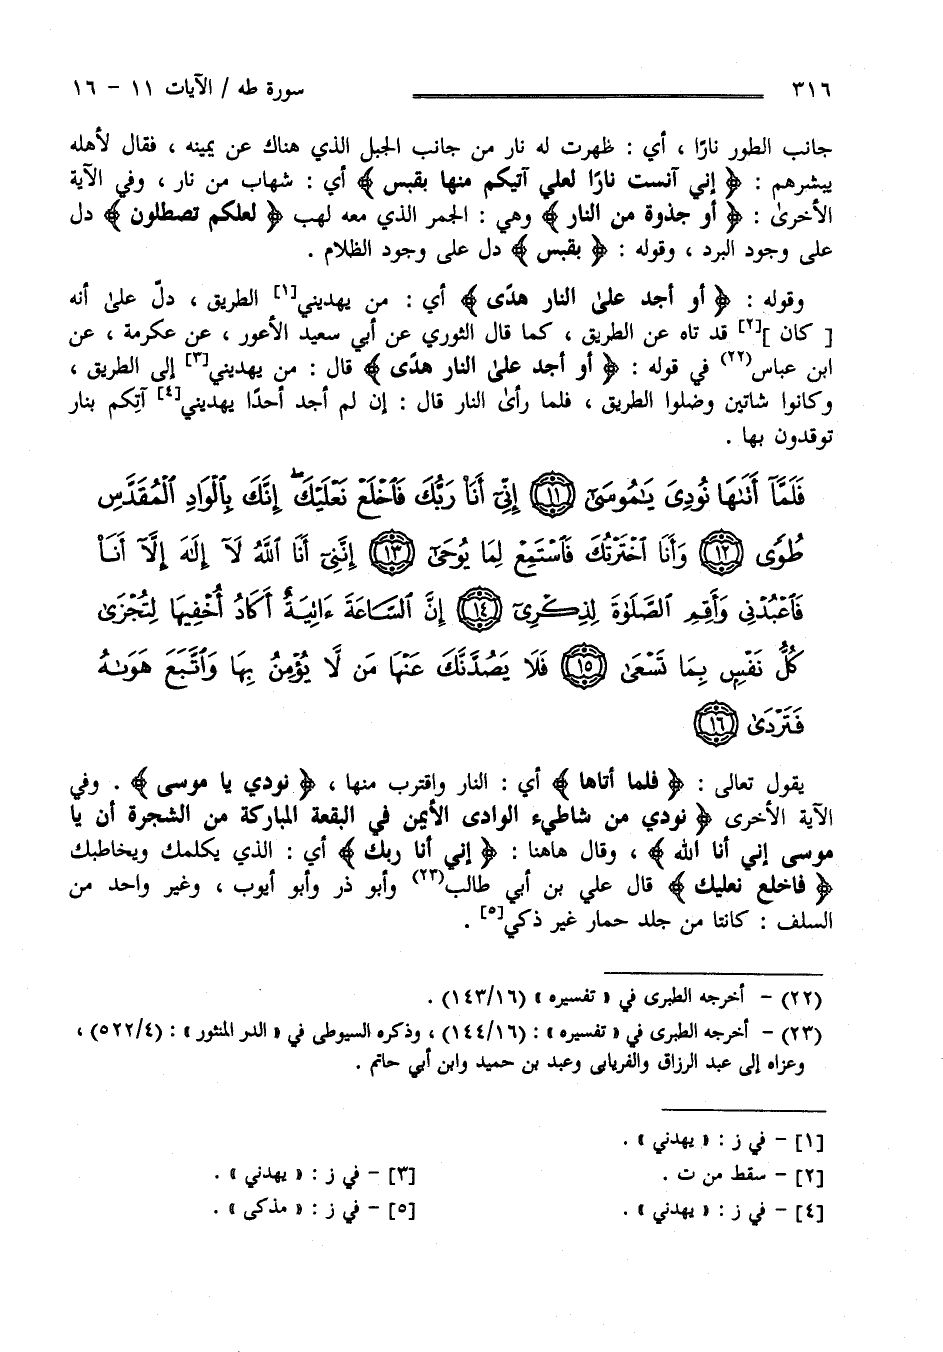 ٣١٦ سورة طه / الآيات ١١ – ١٦
جانب الطور نارًا ، أي : ظهرت له نار من جانب الجبل الذي هناك عن يمينه ، فقال لأهله
يبشرهم : ﴿ إني آنست نارًا لعلي آتيكم منها بقبس ﴾ أي : شهاب من نار ، وفي الآية
الأخرىٰ : ﴿ أو جذوة من النار ﴾ وهي : الجمر الذي معه لهب ﴿ لعلكم تصطلون ﴾ دل
على وجود البرد ، وقوله : ﴿ بقبس ﴾ دل على وجود الظلام .
وقوله : ﴿ أو أجد علىٰ النار هدًى ﴾ أي : من يهديني[١] الطريق ، دلّ علىٰ أنه
[ كان ][٢] قد تاه عن الطريق ، كما قال الثوري عن أبي سعيد الأعور ، عن عكرمة ، عن
ابن عباس(٢٢) في قوله : ﴿ أو أجد علىٰ النار هدًى ﴾ قال : من يهديني[٣] إلى الطريق ،
وكانوا شاتين وضلوا الطريق ، فلما رأىٰ النار قال : إن لم أجد أحدًا يهديني[٤] آتِكم بنار
توقدون بها .
فَلَمَّآ أَتَىٰهَا نُودِىَ يَٰمُوسَىٰٓ ﴿١١﴾ إِنِّىٓ أَنَا۠ رَبُّكَ فَٱخْلَعْ نَعْلَيْكَ ۖ إِنَّكَ بِٱلْوَادِ ٱلْمُقَدَّسِ
طُوًى ﴿١٢﴾ وَأَنَا ٱخْتَرْتُكَ فَٱسْتَمِعْ لِمَا يُوحَىٰٓ ﴿١٣﴾ إِنَّنِىٓ أَنَا ٱللَّهُ لَآ إِلَٰهَ إِلَّآ أَنَا۠
فَٱعْبُدْنِى وَأَقِمِ ٱلصَّلَوٰةَ لِذِكْرِىٓ ﴿١٤﴾ إِنَّ ٱلسَّاعَةَ ءَاتِيَةٌ أَكَادُ أُخْفِيهَا لِتُجْزَىٰ
كُلُّ نَفْسٍۭ بِمَا تَسْعَىٰ ﴿١٥﴾ فَلَا يَصُدَّنَّكَ عَنْهَا مَن لَّا يُؤْمِنُ بِهَا وَٱتَّبَعَ هَوَىٰهُ
فَتَرْدَىٰ ﴿١٦﴾
يقول تعالى : ﴿ فلما أتاها ﴾ أي : النار واقترب منها ، ﴿ نودي يا موسى ﴾ . وفي
الآية الأخرى ﴿ نودي من شاطيء الوادى الأيمن في البقعة المباركة من الشجرة أن يا
موسى إني أنا الله ﴾ ، وقال هاهنا : ﴿ إني أنا ربك ﴾ أي : الذي يكلمك ويخاطبك
﴿ فاخلع نعليك ﴾ قال علي بن أبي طالب(٢٣) وأبو ذر وأبو أيوب ، وغير واحد من
السلف : كانتا من جلد حمار غير ذكي[٥] .
(٢٢) – أخرجه الطبرى في « تفسيره » (١٤٣/١٦) .
(٢٣) – أخرجه الطبرى في « تفسيره » : (١٤٤/١٦) ، وذكره السيوطى في « الدر المنثور » : (٥٢٢/٤) ،
وعزاه إلى عبد الرزاق والفريابى وعبد بن حميد وابن أبي حاتم .
[١] – في ز : « يهدني » .
[٢] – سقط من ت . [٣] – في ز : « يهدني » .
[٤] – في ز : « يهدني » . [٥] – في ز : « مذكى » .